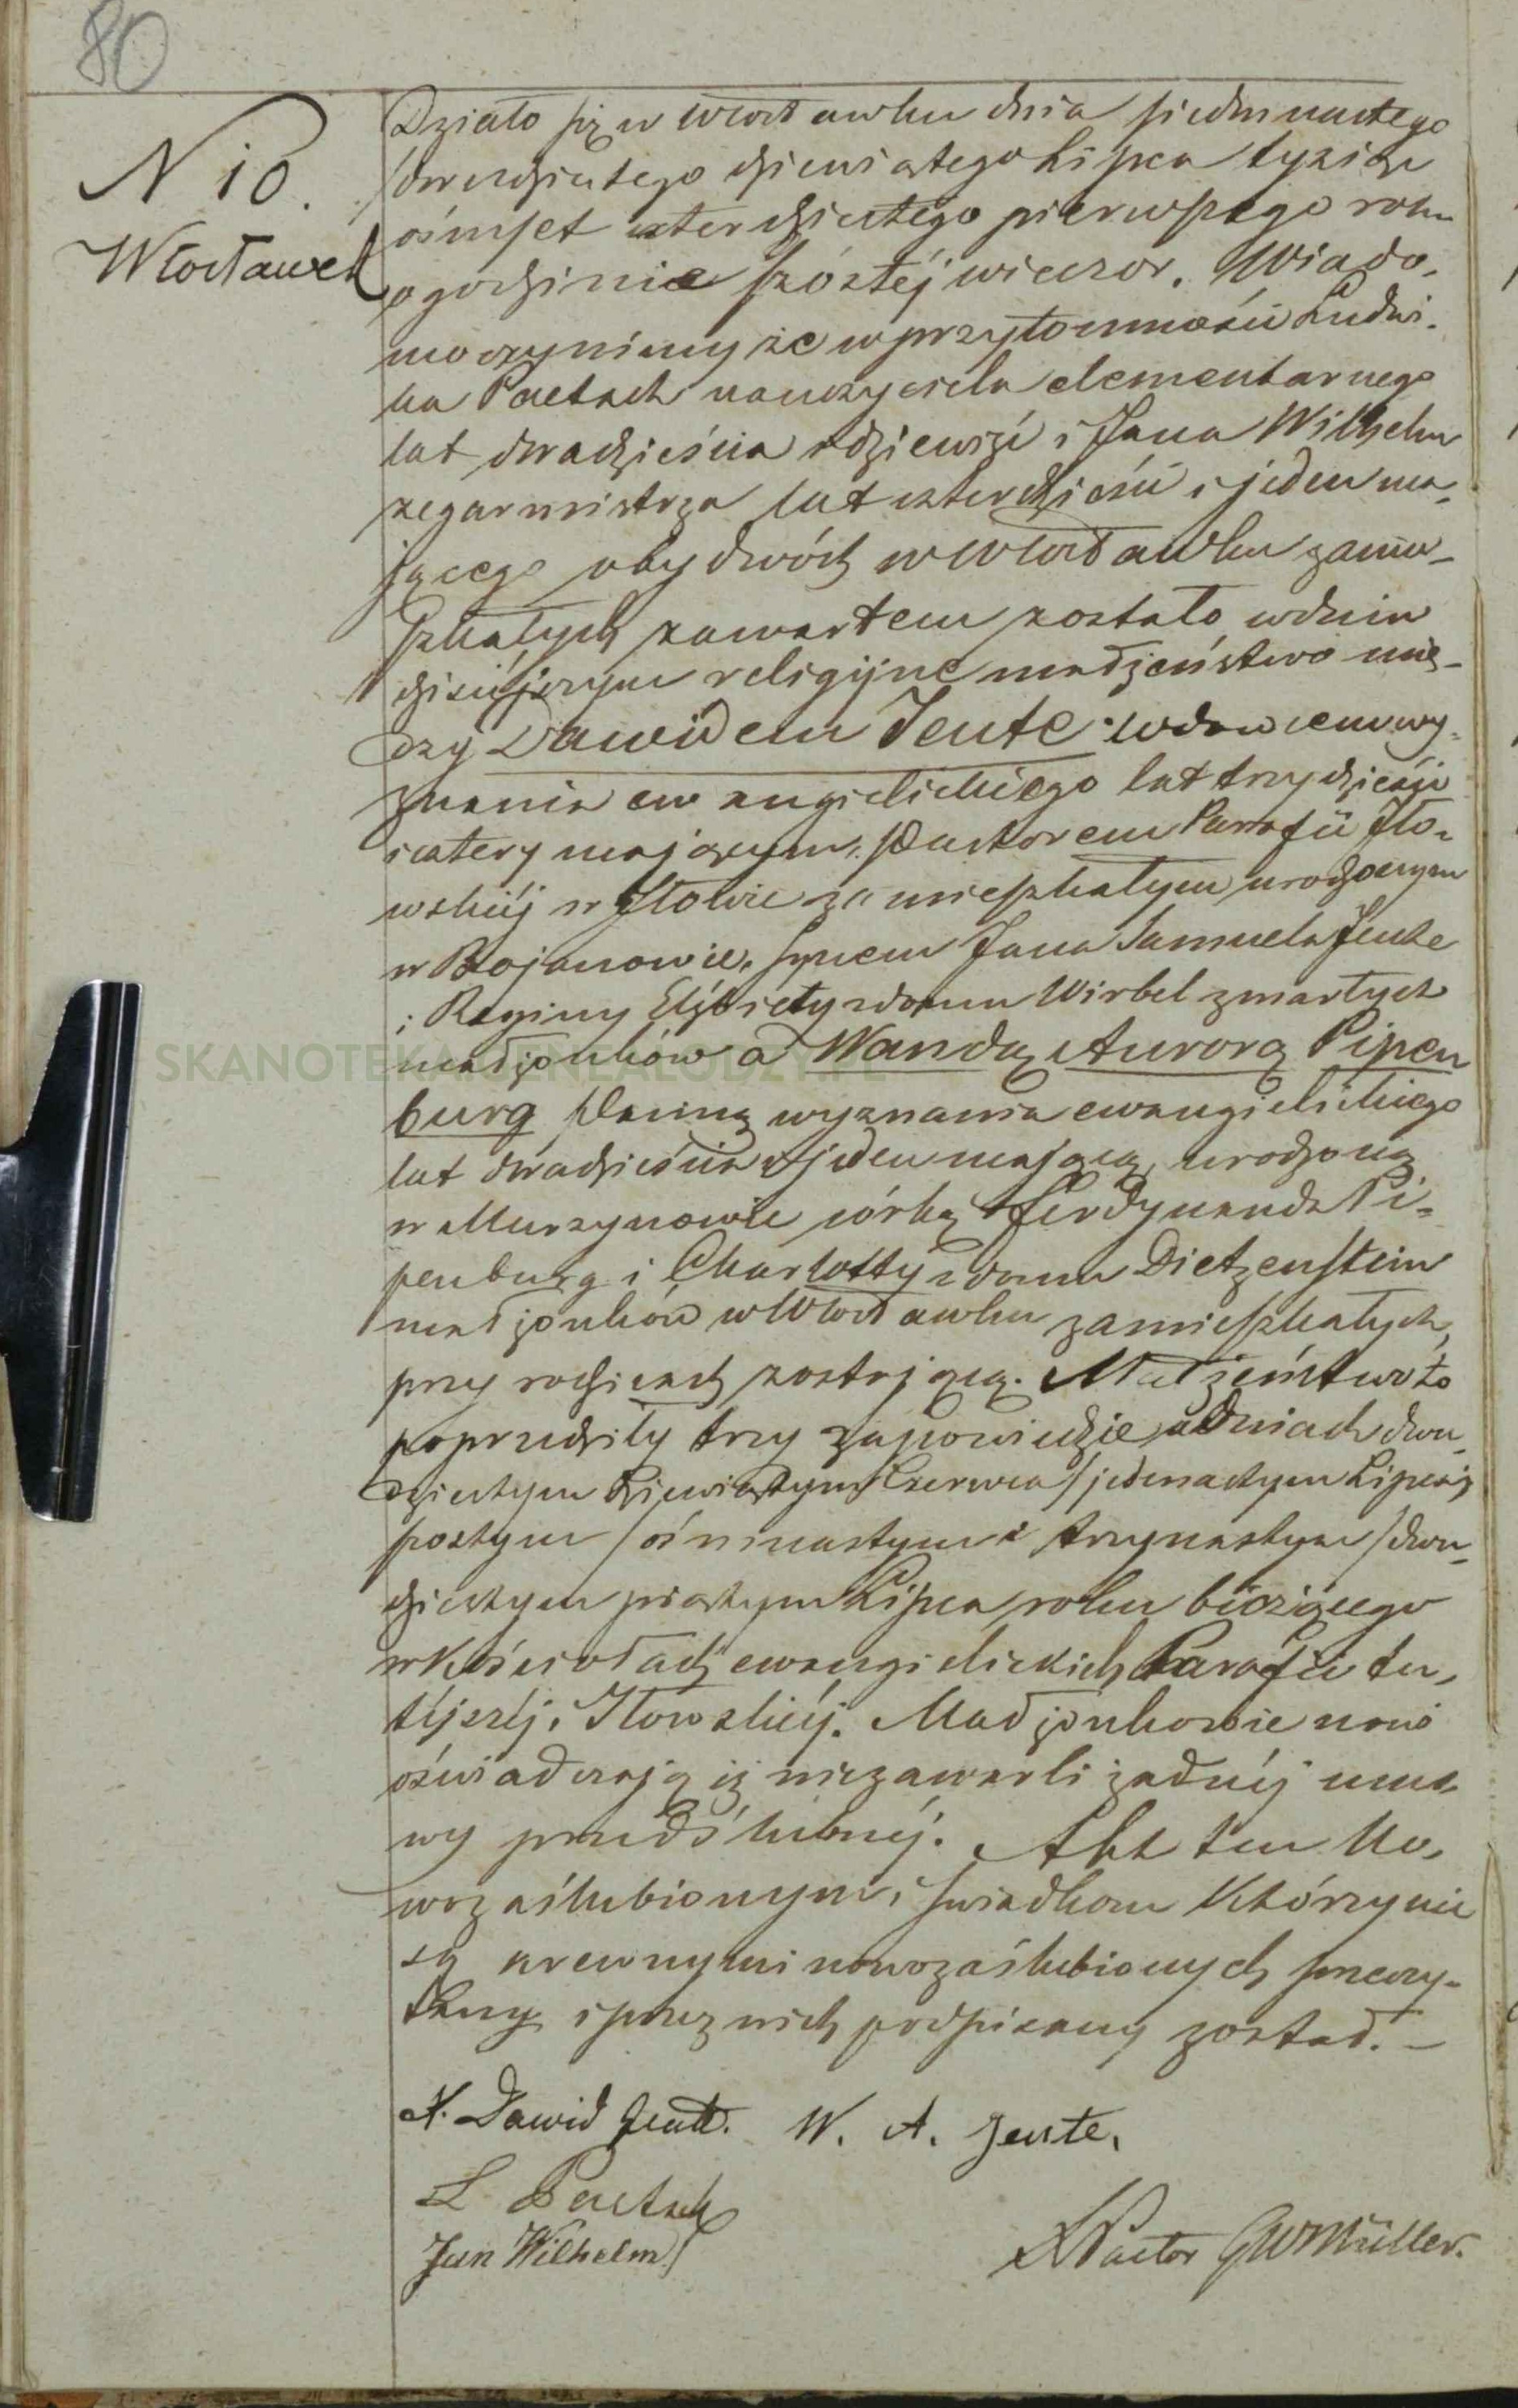 80
N 10.
Włocławek
Działo się w Włocławku dnia siedmnastego
/dwudziestego dziewiątego Lipca tysiąc
ośmset czterdziestego pierwszego roku
o godzinie szóstéj wieczor. Wiado-
mo czynimy że w przytomności Ludwi-
ka Paetsch nauczyciela elementarnego
lat dwadzieścia i dziewięć i Jana Wilhelm
zegarmistrza lat czterdzieści i jeden ma-
jącego obydwóch w Włocławku zamie-
szkałych zawartem zostało w dniu
dzisiéjszym religijne małżeństwo mię-
dzy Dawidem Jente wdowcem wy-
znania ewangielickiego lat trzydzieści
i cztery mającym, Pastorem Parafii Iło-
wskiéj w Iłowie zamieszkałym urodzonym
w Bojanowie, synem Jana Samuela Jente
i Reginy Elżbiety z domu Wirbel zmarłych
małżonków a Wandą Aurorą Pipen
burg Panną wyznania ewangielickiego
lat dwadzieścia i jeden mającą, urodzoną
w Murzynowie córką Ferdynanda Pi-
penburg i Charlotty z domu Dietzenstein
małżonków w Włocławku zamieszkałych,
przy rodzicach zostającą. Małżeństwo to
poprzedziły trzy zapowiedzie w dniach dwu-
dziestym dziewiątym Czerwca/jedenastym Lipca,
szóstym /ośmnastym i trzynastym /dwu-
dziestym piątym Lipca roku bieżącego
w Kościołach ewangielickich Parafii tu-
téjszéj i Iłowskiéj. Małżonkowie nowi
oświadczają iż niezawarli żadnéj umo-
wy przedślubnéj. Akt ten No-
wozaślubionym i świadkom którzy nie
są krewnymi nowozaślubionych przeczy-
tany i przez nich podpisany został. –
X. Dawid Jente. W. A. Jente.
L Paetsch
Jan Wilhelm
X Pastor GWMüller.
SKANOTEKA.GENEALODZY.PL